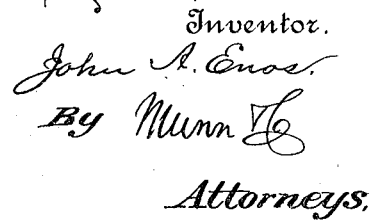 Inventor.
John A. Enos.
By Munn & Co
Attorneys.